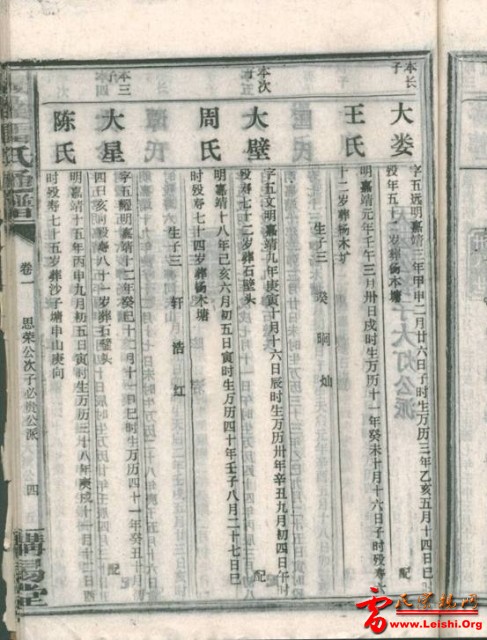 本长子
大娄
字五远明嘉靖三年甲申二月廿六日子时生万历三年乙亥五月十四日巳
时殁年五十二岁葬杨木塘
配
王氏
明嘉靖元年壬午三月卅日戌时生万历十一年癸未十月十六日子时殁寿六
十二岁葬杨木圹
生子三
灿
本次子
大壁
字五文明嘉靖九年庚寅十月十六日辰时生万历卅年辛丑九月初四日午时
殁寿七十二岁葬石壁头
配
周氏
明嘉靖十八年己亥六月初五日寅时生万历四十年壬子八月二十七日巳
时殁寿七十四岁葬杨木塘
生子三
轩
浩
本三子
大星
字五耀明嘉靖十二年癸巳十二月十一日巳时生万历四十一年癸丑十
四日亥时殁寿八十一岁葬石壁头
配
陈氏
明嘉靖十五年丙申九月初五日寅时生万历三十八年庚戌十一月十二日酉
时殁寿七十五岁葬沙子塘申山庚向
氏通谱
卷一
思荣公次子必贵公派
四
堂
大灯公派
www.Leishi.Org